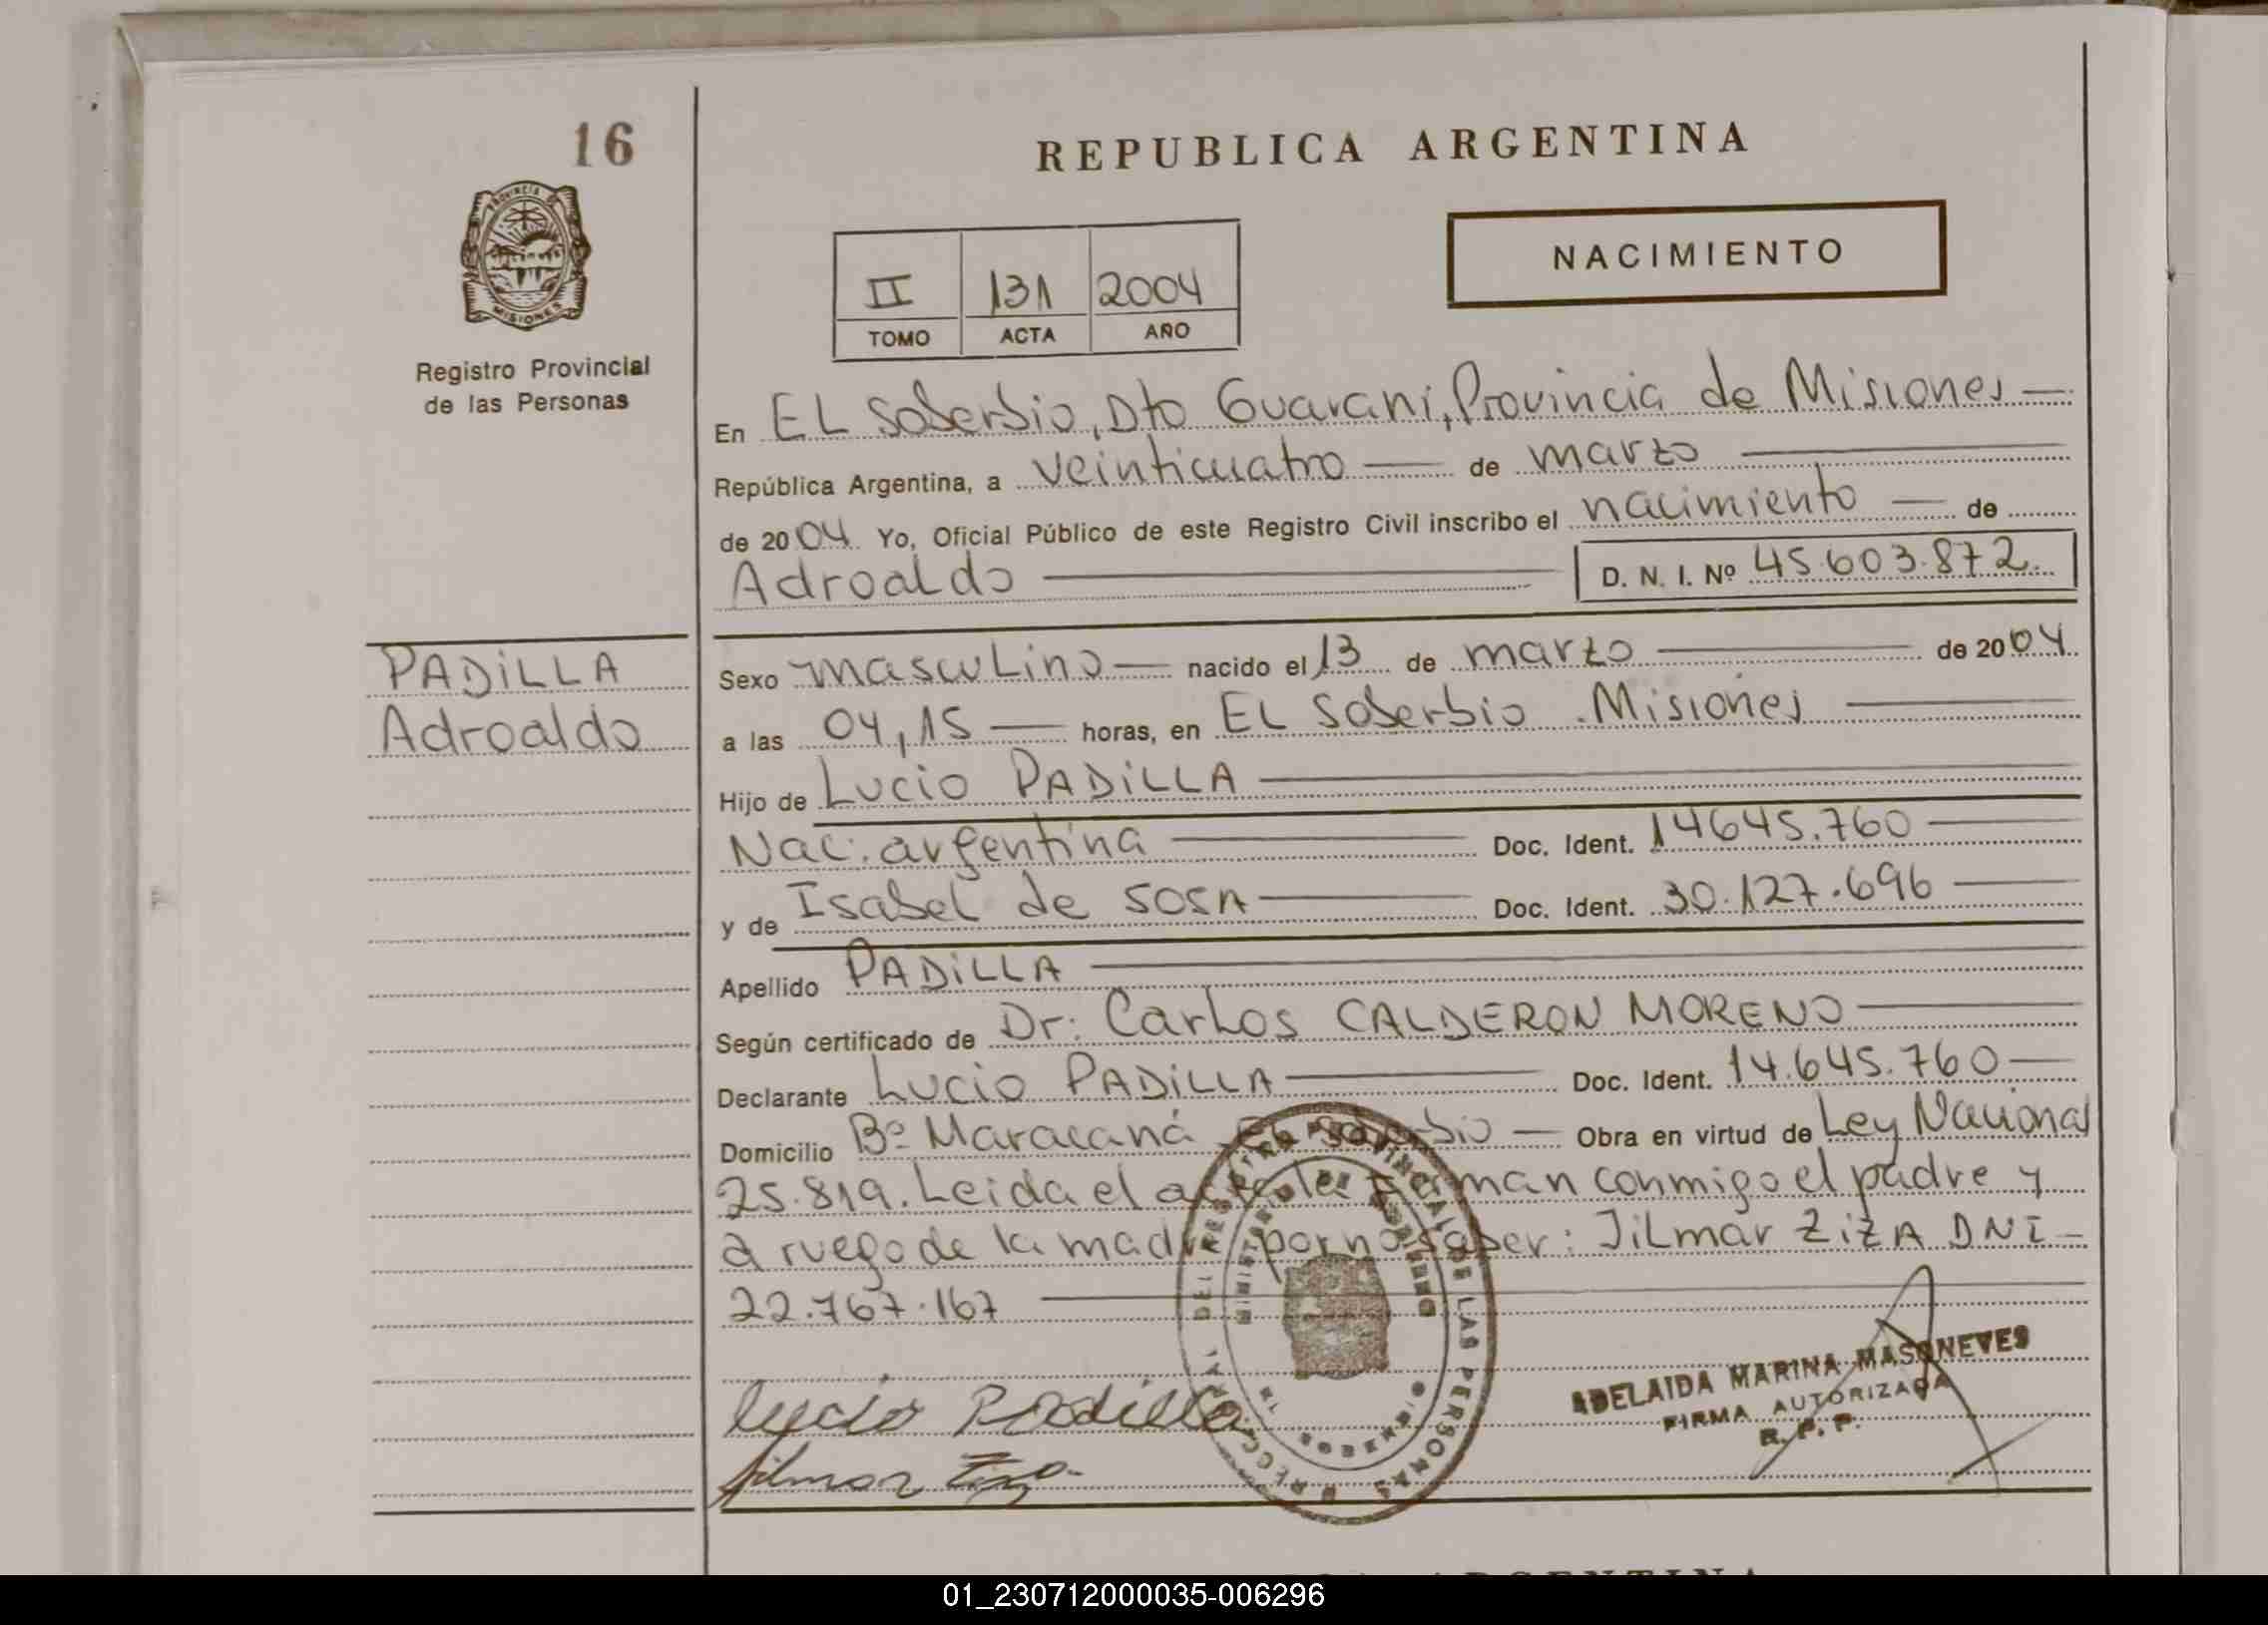 16
REPUBLICA ARGENTINA
PROVINCIA DE
MISIONES
Registro Provincial
de las Personas
NACIMIENTO
II 131 2004
TOMO ACTA AÑO
En EL Soberbio, Dto Guaraní, Provincia de Misiones
República Argentina, a veinticuatro de marzo
de 2004 Yo, Oficial Público de este Registro Civil inscribo el nacimiento de
Adroaldo D. N. I. Nº 45.603.872.
PADiLLA
Adroaldo
Sexo masculino nacido el 13 de marzo de 2004
a las 04,15 horas, en EL Soberbio .Misiones
Hijo de Lucio PADiLLA
Nac. argentina Doc. Ident. 14645.760
y de Isabel de SOSA Doc. Ident. 30.127.696
Apellido PADiLLA
Según certificado de Dr: Carlos CALDERON MORENO
Declarante Lucio PADiLLA Doc. Ident. 14.645.760
Domicilio Bº Maracaná El Soberbio Obra en virtud de Ley Nacional
25.819. Leida el acta la firman conmigo el padre y
a ruego de la madre por no saber: Jilmar ZiZA DNI
22.767.167
DIRECCION GENERAL DEL REGISTRO PROVINCIAL DE LAS PERSONAS
MINISTERIO DE GOBIERNO
MISIONES
Lucio Padilla
Jilmar Ziza
ADELAIDA MARINA MASONEVES
FIRMA AUTORIZADA
R. P. P.
ARGENTINA
01_230712000035-006296